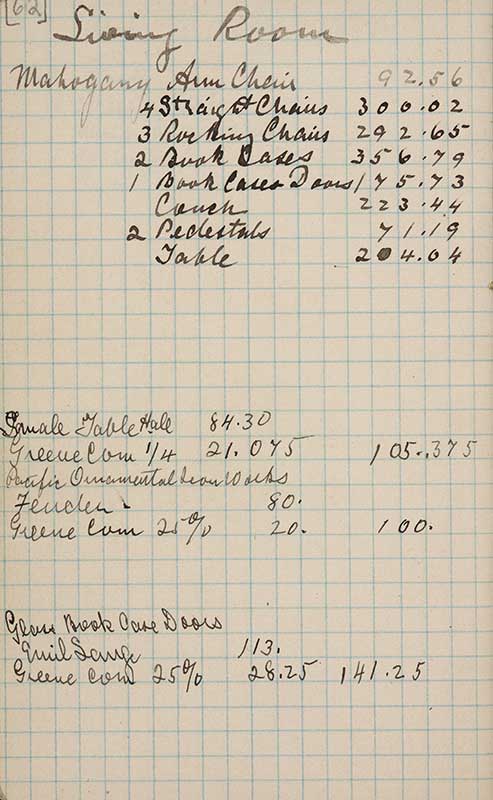 [62]
Living Room
Mahogany Arm Chair 92.56
4 Straight Chairs 300.02
3 Rocking Chairs 292.65
2 Book Cases 356.79
1 Book Cases Doors 175.73
Couch 223.44
2 Pedestals 71.19
Table 204.04
Table Hale 84.30
Greene Com 1/4 21.075 105.375
Pacific Ornamental Iron Works
Fender - 80.
Greene Com 25% 20. 100.
Glass Book Case Doors
Emil Lange 113.
Greene Com 25% 28.25 141.25